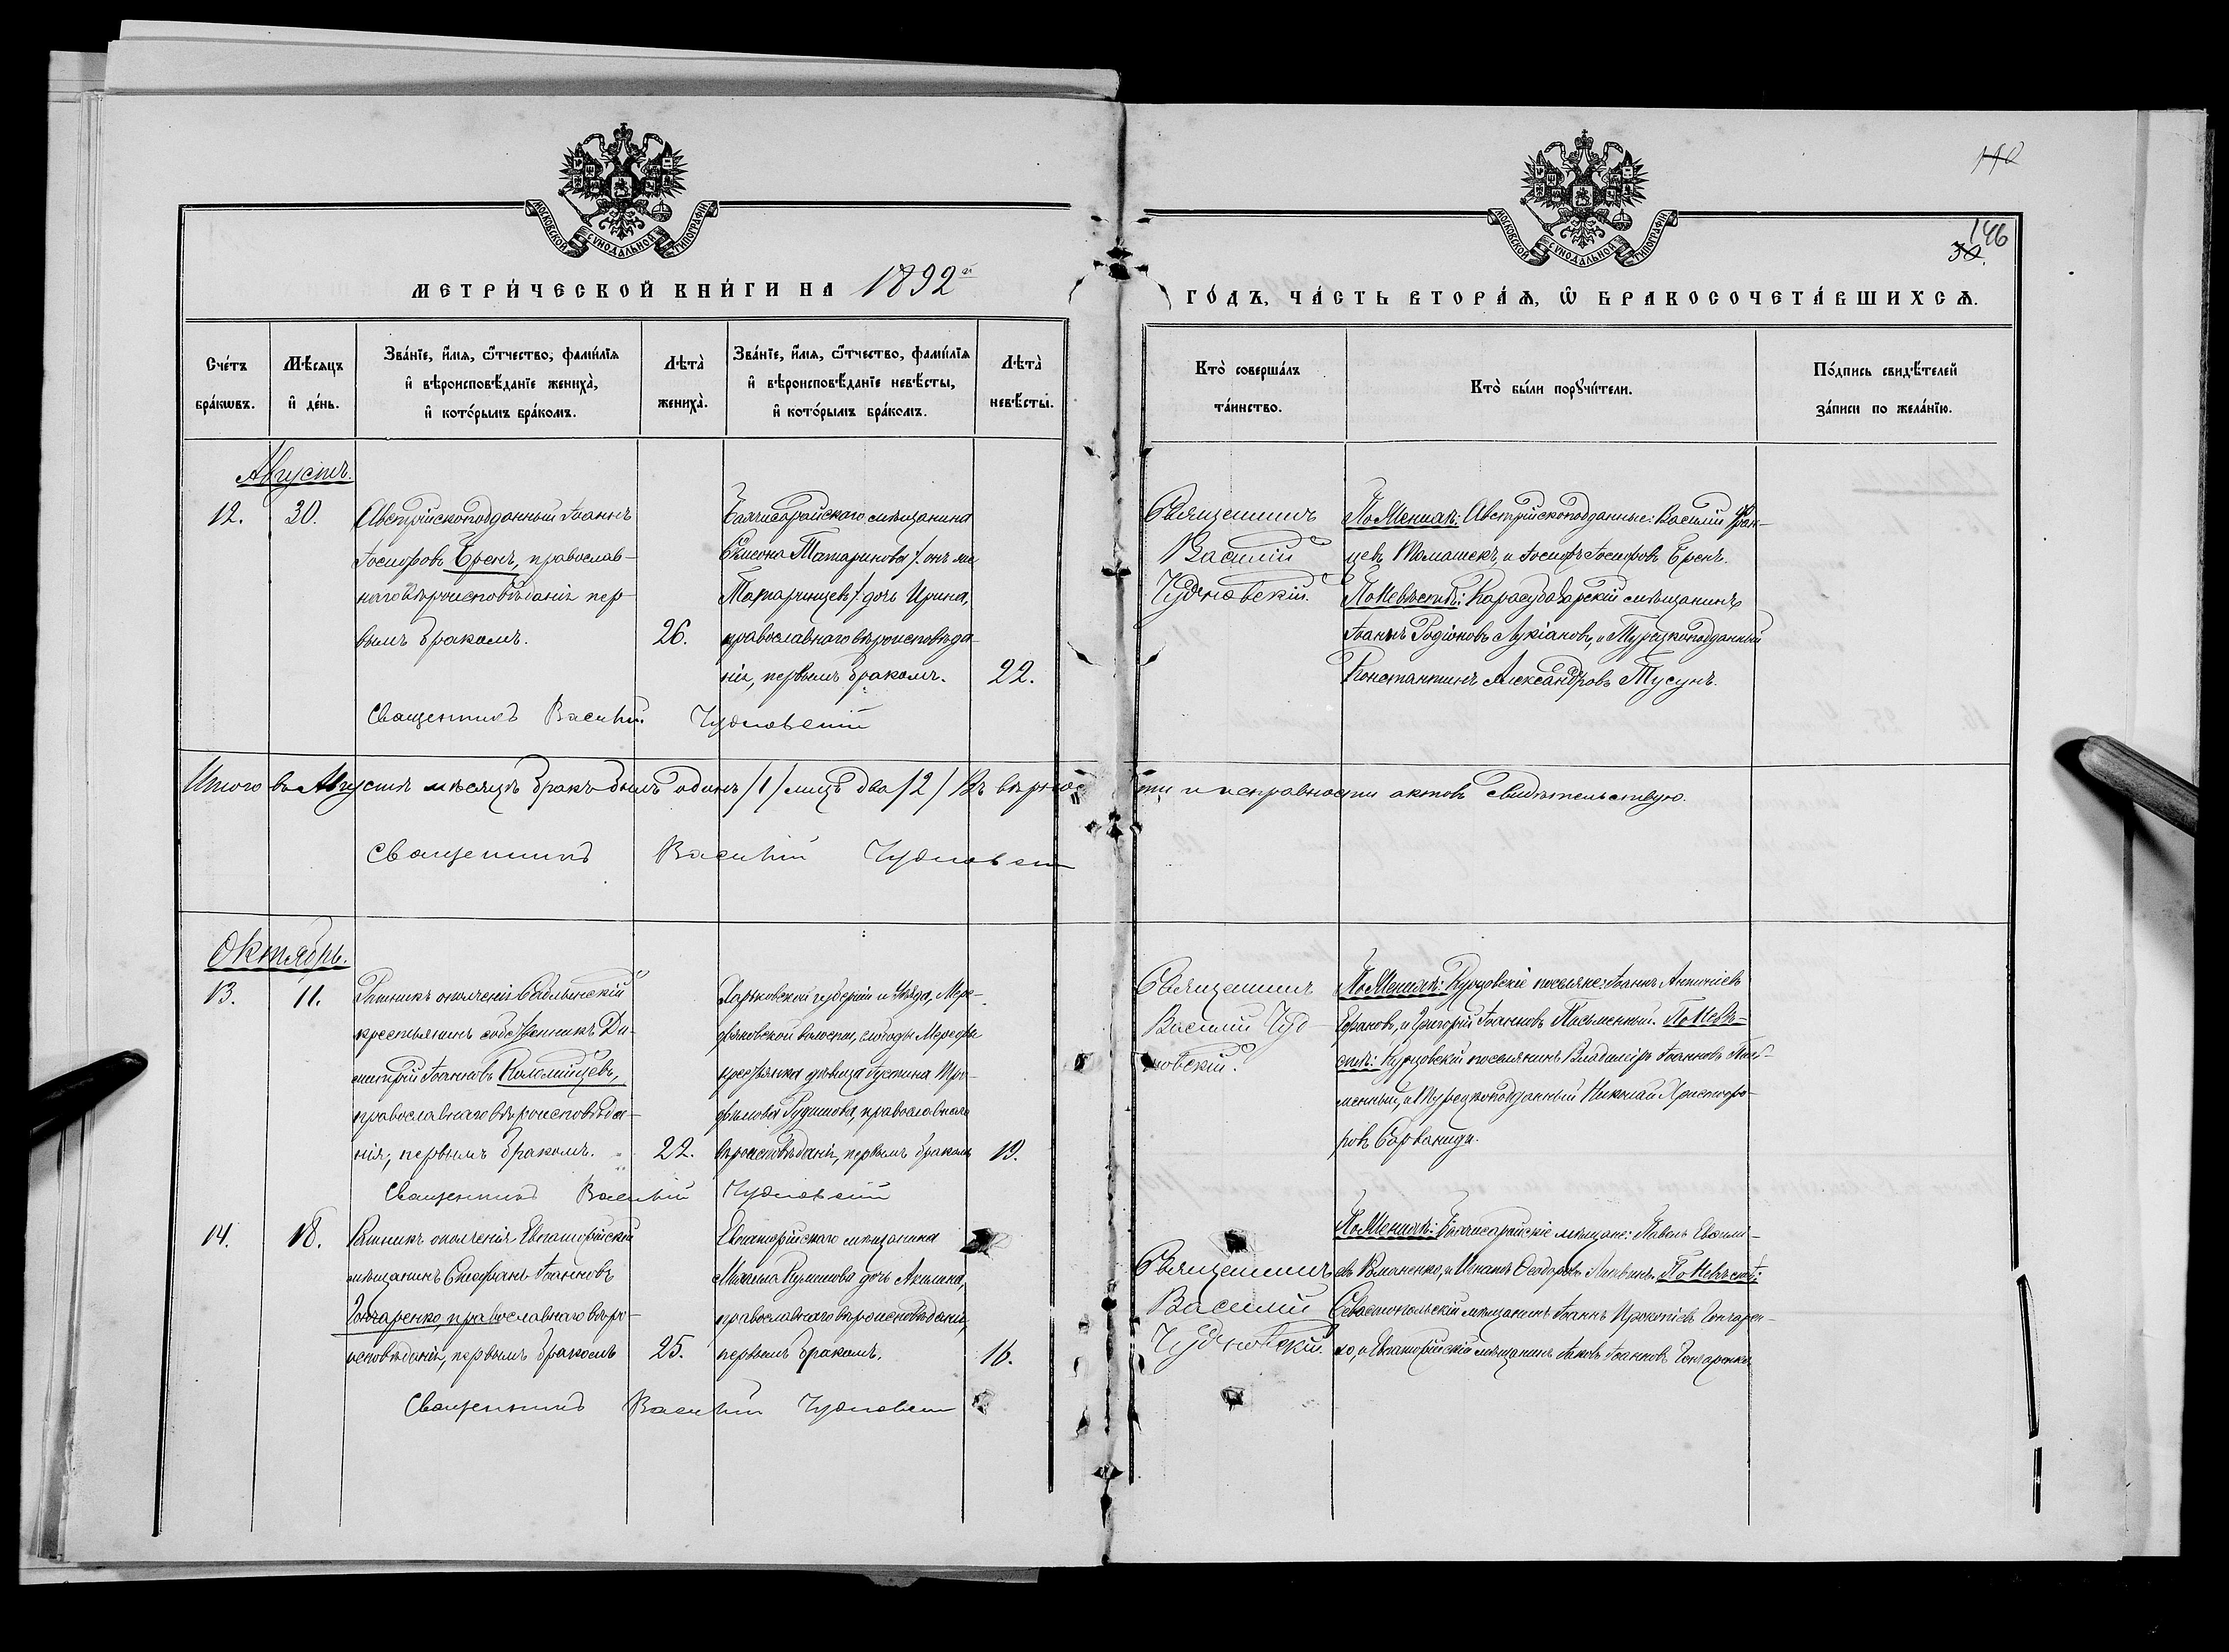 110
146
30.
МОСКОВСКОЙ СѴНОДАЛЬНОЙ ТИПОГРАФІИ
МОСКОВСКОЙ СѴНОДАЛЬНОЙ ТИПОГРАФІИ
МЕТРИ́ЧЕСКОЙ КНИ́ГИ НА 1892й
ГО́ДЪ, ЧА́СТЬ ВТОРА́Ѧ, Ѿ БРАКОСОЧЕТА́ВШИХСѦ.
Сче́тъ бра́кѡвъ.
Мѣ́сяцъ и҆ де́нь.
Зва́нїе, и҆́мѧ, ѻ҆́тчество, фами́лїѧ и҆ вѣроисповѣ́данїе жениха̀, и҆ кото́рымъ бра́комъ.
Лѣта̀ жениха̀.
Зва́нїе, и҆́мѧ, ѻ҆́тчество, фами́лїѧ и҆ вѣроисповѣ́данїе невѣ́сты, и҆ кото́рымъ бра́комъ.
Лѣта̀ невѣ́сты.
Кто̀ соверша́лъ та́инство.
Кто̀ бы́ли порꙋчи́тели.
По́дпись свидѣ́телей за́писи по жела́нїю.
Августъ.
12.
30.
Австрійскоподданный Іоаннъ
Іосифовъ Еренъ, православ-
наго вѣроисповѣданія пер-
вымъ бракомъ.
26.
Бахчисарайскаго мѣщанина
Симеона Татаринова /: онъ же
Татаринцевъ :/ дочь Ирина,
православнаго вѣроисповѣда-
нія, первымъ бракомъ.
22.
Священникъ
Василій
Чудновскій.
По Женихѣ: Австрійскоподданные: Василій Фран-
цевъ Томашекъ, и Іосифъ Іосифовъ Еренъ.
По Невѣстѣ: Карасубазарскій мѣщанинъ
Іоаннъ Родіоновъ Лукіановъ, и Турецкоподданный
Константинъ Александровъ Тусунъ.
Священникъ Василій Чудновскій
Итого въ Августѣ мѣсяцѣ бракъ былъ одинъ /1/ лицъ два /2/ Въ вѣрнос-
ти и исправности актовъ свидѣтельствую.
Священникъ Василій Чудновскій
Октябрь.
13.
11.
Ратникъ ополченія
крестьянинъ собственникъ Ди-
митрій Іоанновъ Коломійцевъ,
православнаго вѣроисповѣда-
нія, первымъ бракомъ.
22.
Харьковской губерніи и уѣзда, Мере-
фянской волости, слободы Мерефы
крестьянка дѣвица Іустина Тро-
фимова Рудакова, православнаго
вѣроисповѣданія, первымъ бракомъ
19.
Священникъ
Василій Чуд-
новскій.
По Женихѣ: Курцовскіе поселяне: Іоаннъ Антоніевъ
и Григорій Іоанновъ Письменный. По Невѣ-
стѣ: Курцовскій поселянинъ Владиміръ Іоанновъ Пись-
менный, и Турецкоподданный Николай Христофо-
ровъ
Священникъ Василій Чудновскій
14.
18.
Ратникъ ополченія Евпаторійскій
мѣщанинъ Стефанъ Іоанновъ
Гончаренко, православнаго вѣро-
исповѣданія, первымъ бракомъ
25.
Евпаторійскаго мѣщанина
дочь Акилина,
православнаго вѣроисповѣданія,
первымъ бракомъ.
16.
Священникъ
Василій
Чудновскій.
По Женихѣ: Бахчисарайскіе мѣщане: Павелъ Евфимі-
евъ Романенко, и Михаилъ Ѳеодоровъ Литвинъ. По Невѣстѣ:
Севастопольскій мѣщанинъ Іоаннъ Прокопіевъ Гончарен-
ко, и Евпаторійскій мѣщанинъ Іаковъ Іоанновъ Гончаренко.
Священникъ Василій Чудновскій